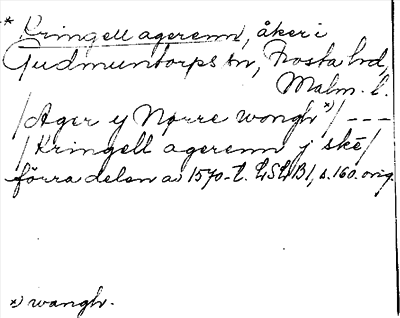 * Kringell agerenn, åker i
Gudmuntorps sn, Frosta hd,
Malm. l.
/Ager y Nørre wongh x)/ - - -
/Kringell agerenn j skē/
förra delen av 1570-t. LSLB1, s. 160. orig.
x) wangh.